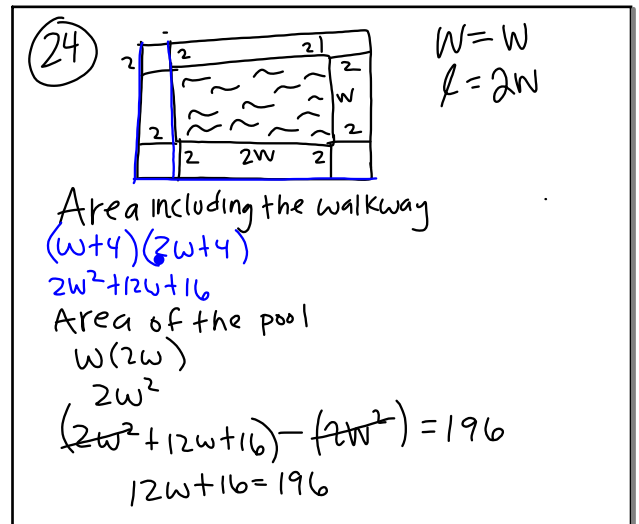 24
W = W
l = 2W
2 2 2
2
W
2 2
2 2W 2
Area including the walkway
(w+4)(2w+4)
2w²+12w+16
Area of the pool
W(2w)
2w²
(2w²+12w+16)-(2w²) = 196
12w+16=196